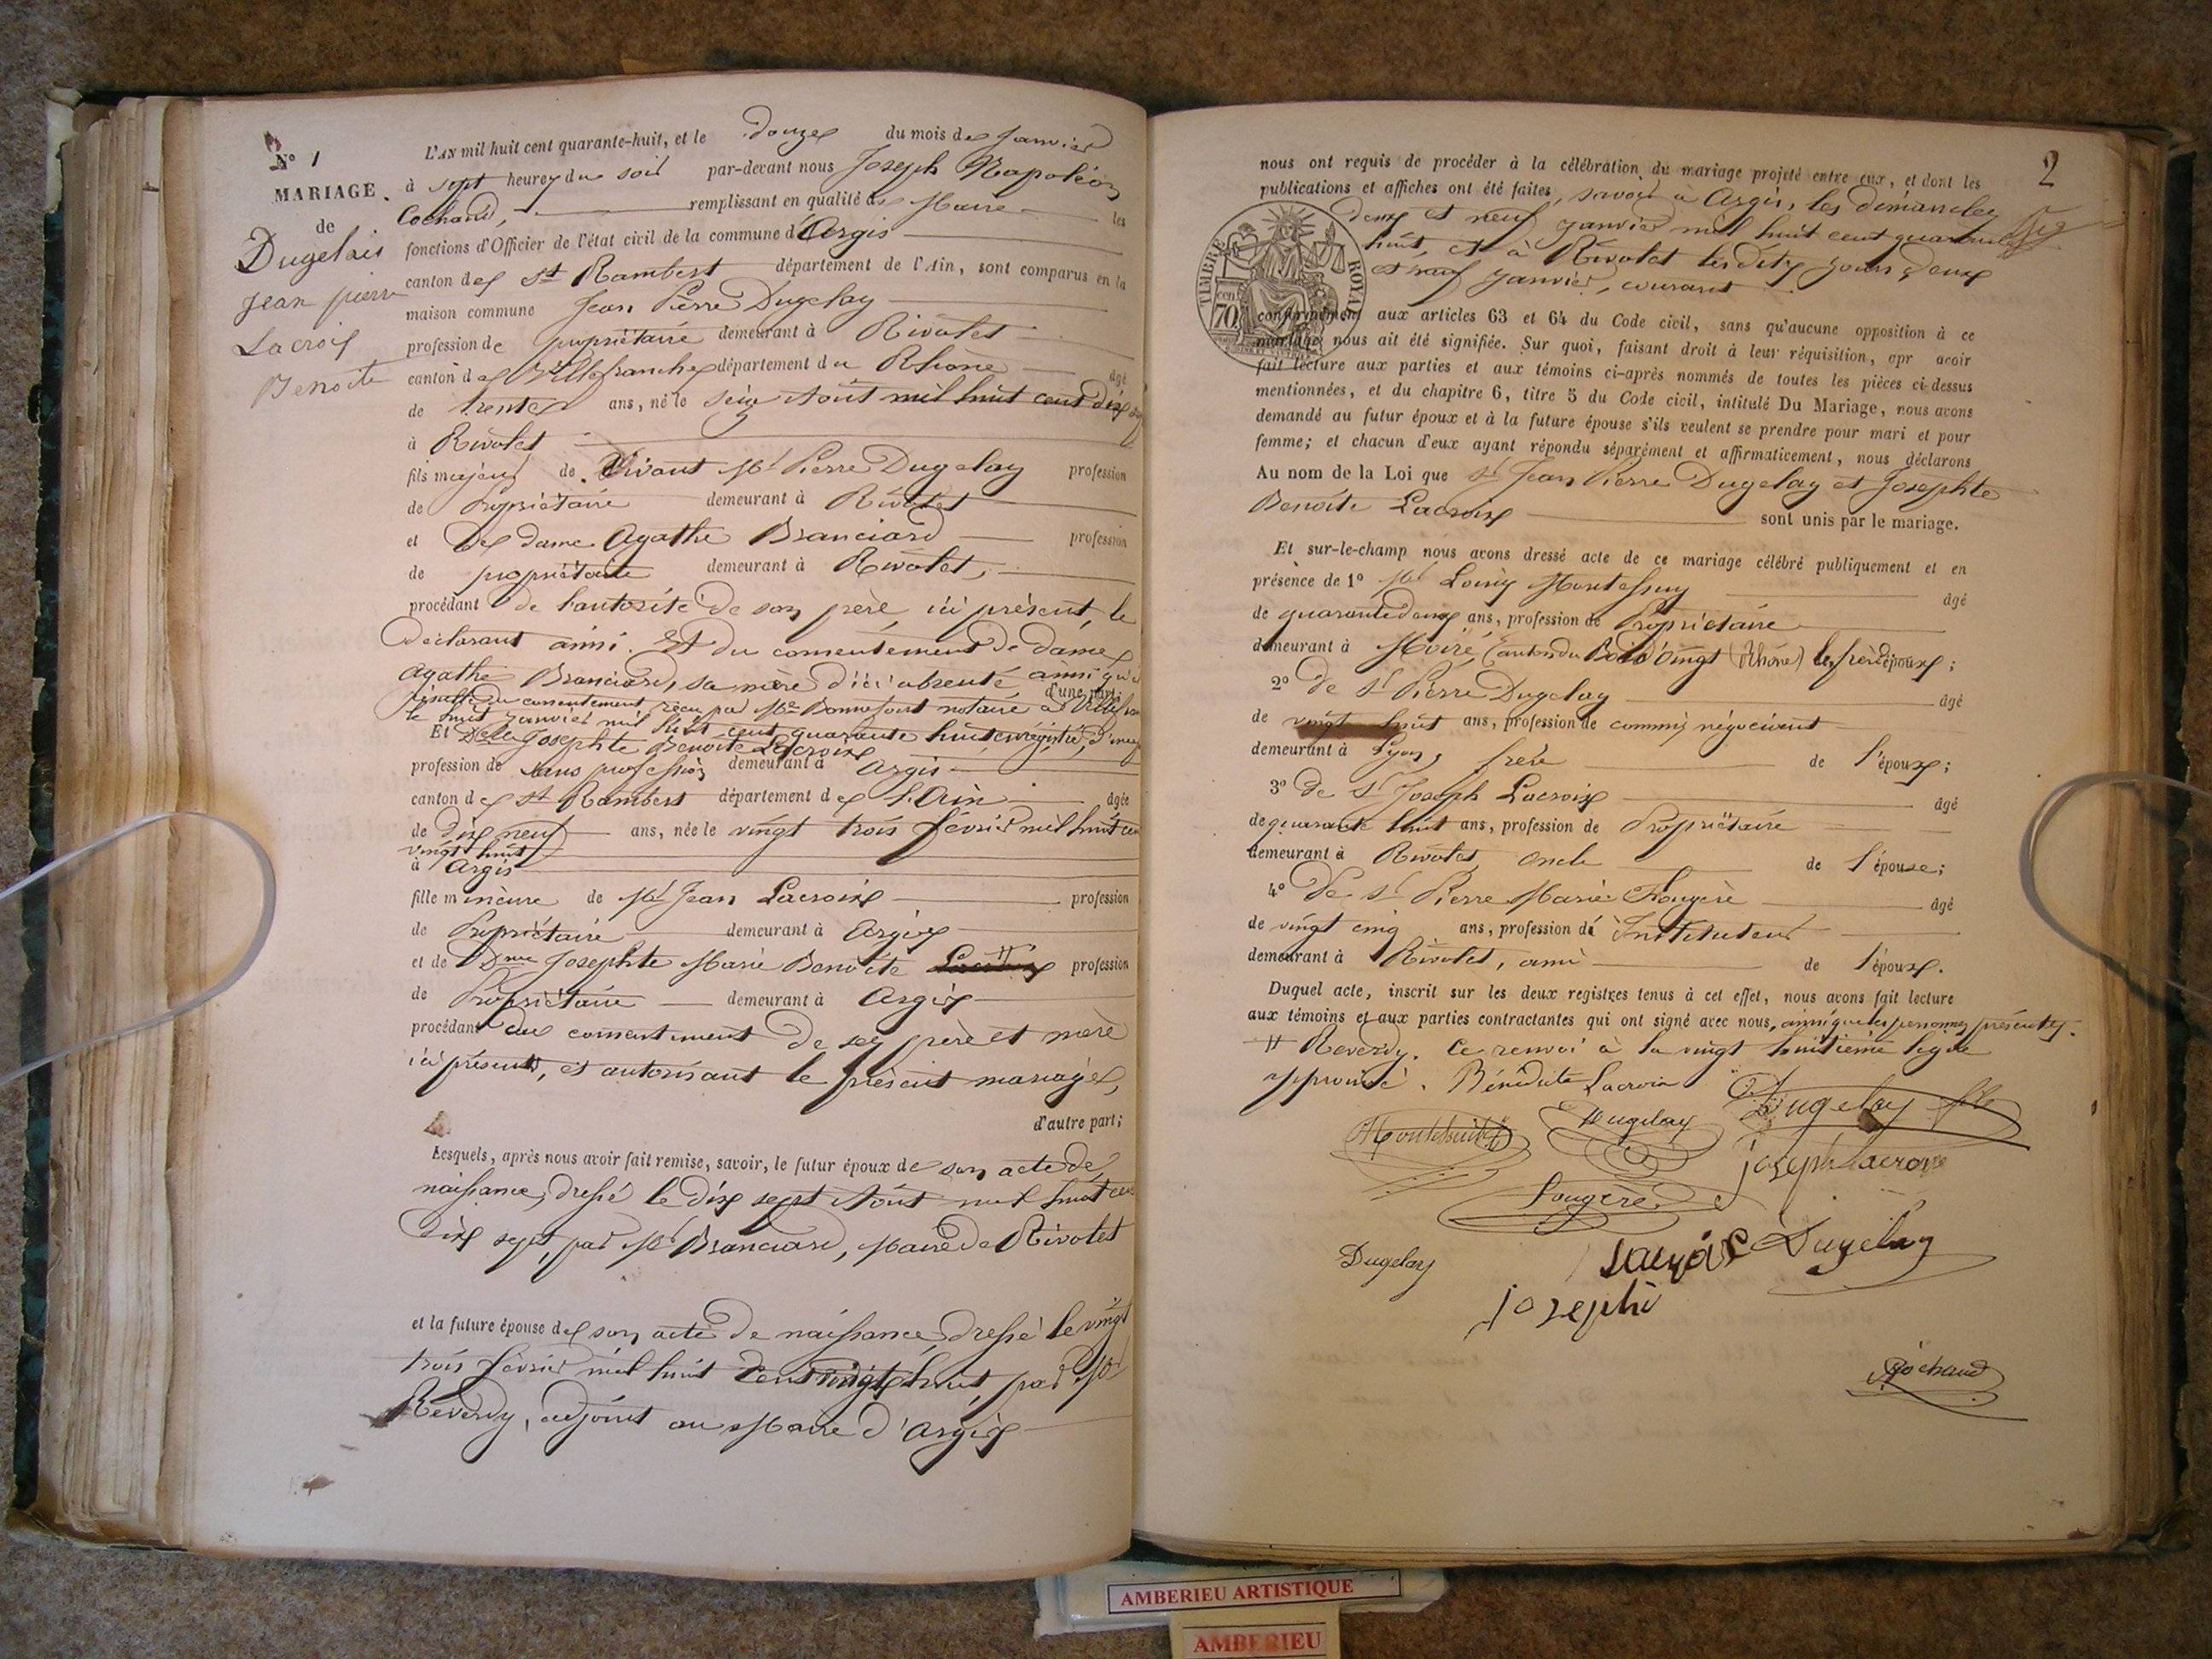 N° 1
MARIAGE
de
Dugelais
Jean pierre
Lacroix
Benoite
L'AN mil huit cent quarante-huit, et le douze du mois de Janvier
à sept heures du soir par-devant nous Joseph Napoléon
Cochaud, remplissant en qualité de Maire les
fonctions d'Officier de l'état civil de la commune d'Argis
canton de St Rambert département de l'Ain, sont comparus en la
maison commune Jean Pierre Dugelay
profession de propriétaire demeurant à Rivolet
canton de Villefranche département du Rhône âgé
de trente ans, né le seize Août mil huit cent dix sept
à Rivolet
fils majeur de Vivant Mr Pierre Dugelay profession
de Propriétaire demeurant à Rivolet
et De dame Agathe Branciard profession
de propriétaire demeurant à Rivolet,
procédant de l'autorité de son père, ici présent, le
déclarant ainsi. Et du consentement de dame
Agathe Branciard, sa mère d'ici absente ainsi qu'il
d'une part;
résulte du consentement reçu par Me Bonnefont notaire à Villefranche
le huit janvier mil huit cent quarante huit enregistré, d'une
Et Delle Josephte Benoite Lacroix
profession de sans profession demeurant à Argis
canton de St Rambert département de l'Ain âgée
de dix neuf ans, née le vingt trois février mil huit cent
vingt huit
à Argis
fille mineure de Mr Jean Lacroix profession
de Propriétaire demeurant à Argis
et de Dme Josephte Marie Benoite profession
de Propriétaire demeurant à Argis
procédant du consentement de ses père et mère
ici présents, et autorisant le présent mariage,
d'autre part;
Lesquels, après nous avoir fait remise, savoir, le futur époux de son acte de
naissance, dressé le dix sept Août mil huit cent
dix sept, par Mr Branciard, Maire de Rivolet
et la future épouse de son acte de naissance, dressé le vingt
trois février mil huit cent vingt huit, par Mr
Reverdy, adjoint au Maire d'Argis
2
nous ont requis de procéder à la célébration du mariage projeté entre eux, et dont les
publications et affiches ont été faites, savoir à Argis, les dimanches
deux et neuf janvier mil huit cent quarante
huit, et à Rivolet lesdits jours, deux
et neuf janvier, courant
TIMBRE ROYAL
70 cen
conformément aux articles 63 et 64 du Code civil, sans qu'aucune opposition à ce
mariage nous ait été signifiée. Sur quoi, faisant droit à leur réquisition, apr avoir
fait lecture aux parties et aux témoins ci-après nommés de toutes les pièces ci-dessus
mentionnées, et du chapitre 6, titre 5 du Code civil, intitulé Du Mariage, nous avons
demandé au futur époux et à la future épouse s'ils veulent se prendre pour mari et pour
femme; et chacun d'eux ayant répondu séparément et affirmativement, nous déclarons
Au nom de la Loi que Sr Jean Pierre Dugelay et Josephte
Benoite Lacroix sont unis par le mariage.
Et sur-le-champ nous avons dressé acte de ce mariage célébré publiquement et en
présence de 1° Mr Louis Montessuy âgé
de quarante deux ans, profession de Propriétaire
demeurant à Moiré, (canton du Bois d'Oingt (Rhône) époux;
2° de Sr Pierre Dugelay âgé
de vingt huit ans, profession de commis négociant
demeurant à Lyon, frère de l'époux;
3° de Sr Joseph Lacroix âgé
de quarante huit ans, profession de Propriétaire
demeurant à Rivolet, oncle de l'épouse;
4° de Sr Pierre Marie Fougère âgé
de vingt cinq ans, profession d' Instituteur
demeurant à Rivolet, ami de l'époux.
Duquel acte, inscrit sur les deux registres tenus à cet effet, nous avons fait lecture
aux témoins et aux parties contractantes qui ont signé avec nous, ainsi que les personnes présentes.
# Reverdy. Ce renvoi à la vingt huitième ligne
approuvé. Bénédicte Lacroix
Dugelay fils
Dugelay
Montessuit
joseph lacroix
Fougère
Dugelay
Lacroix
Dugelay
josephi
Cochaud
AMBERIEU ARTISTIQUE
AMBERIEU